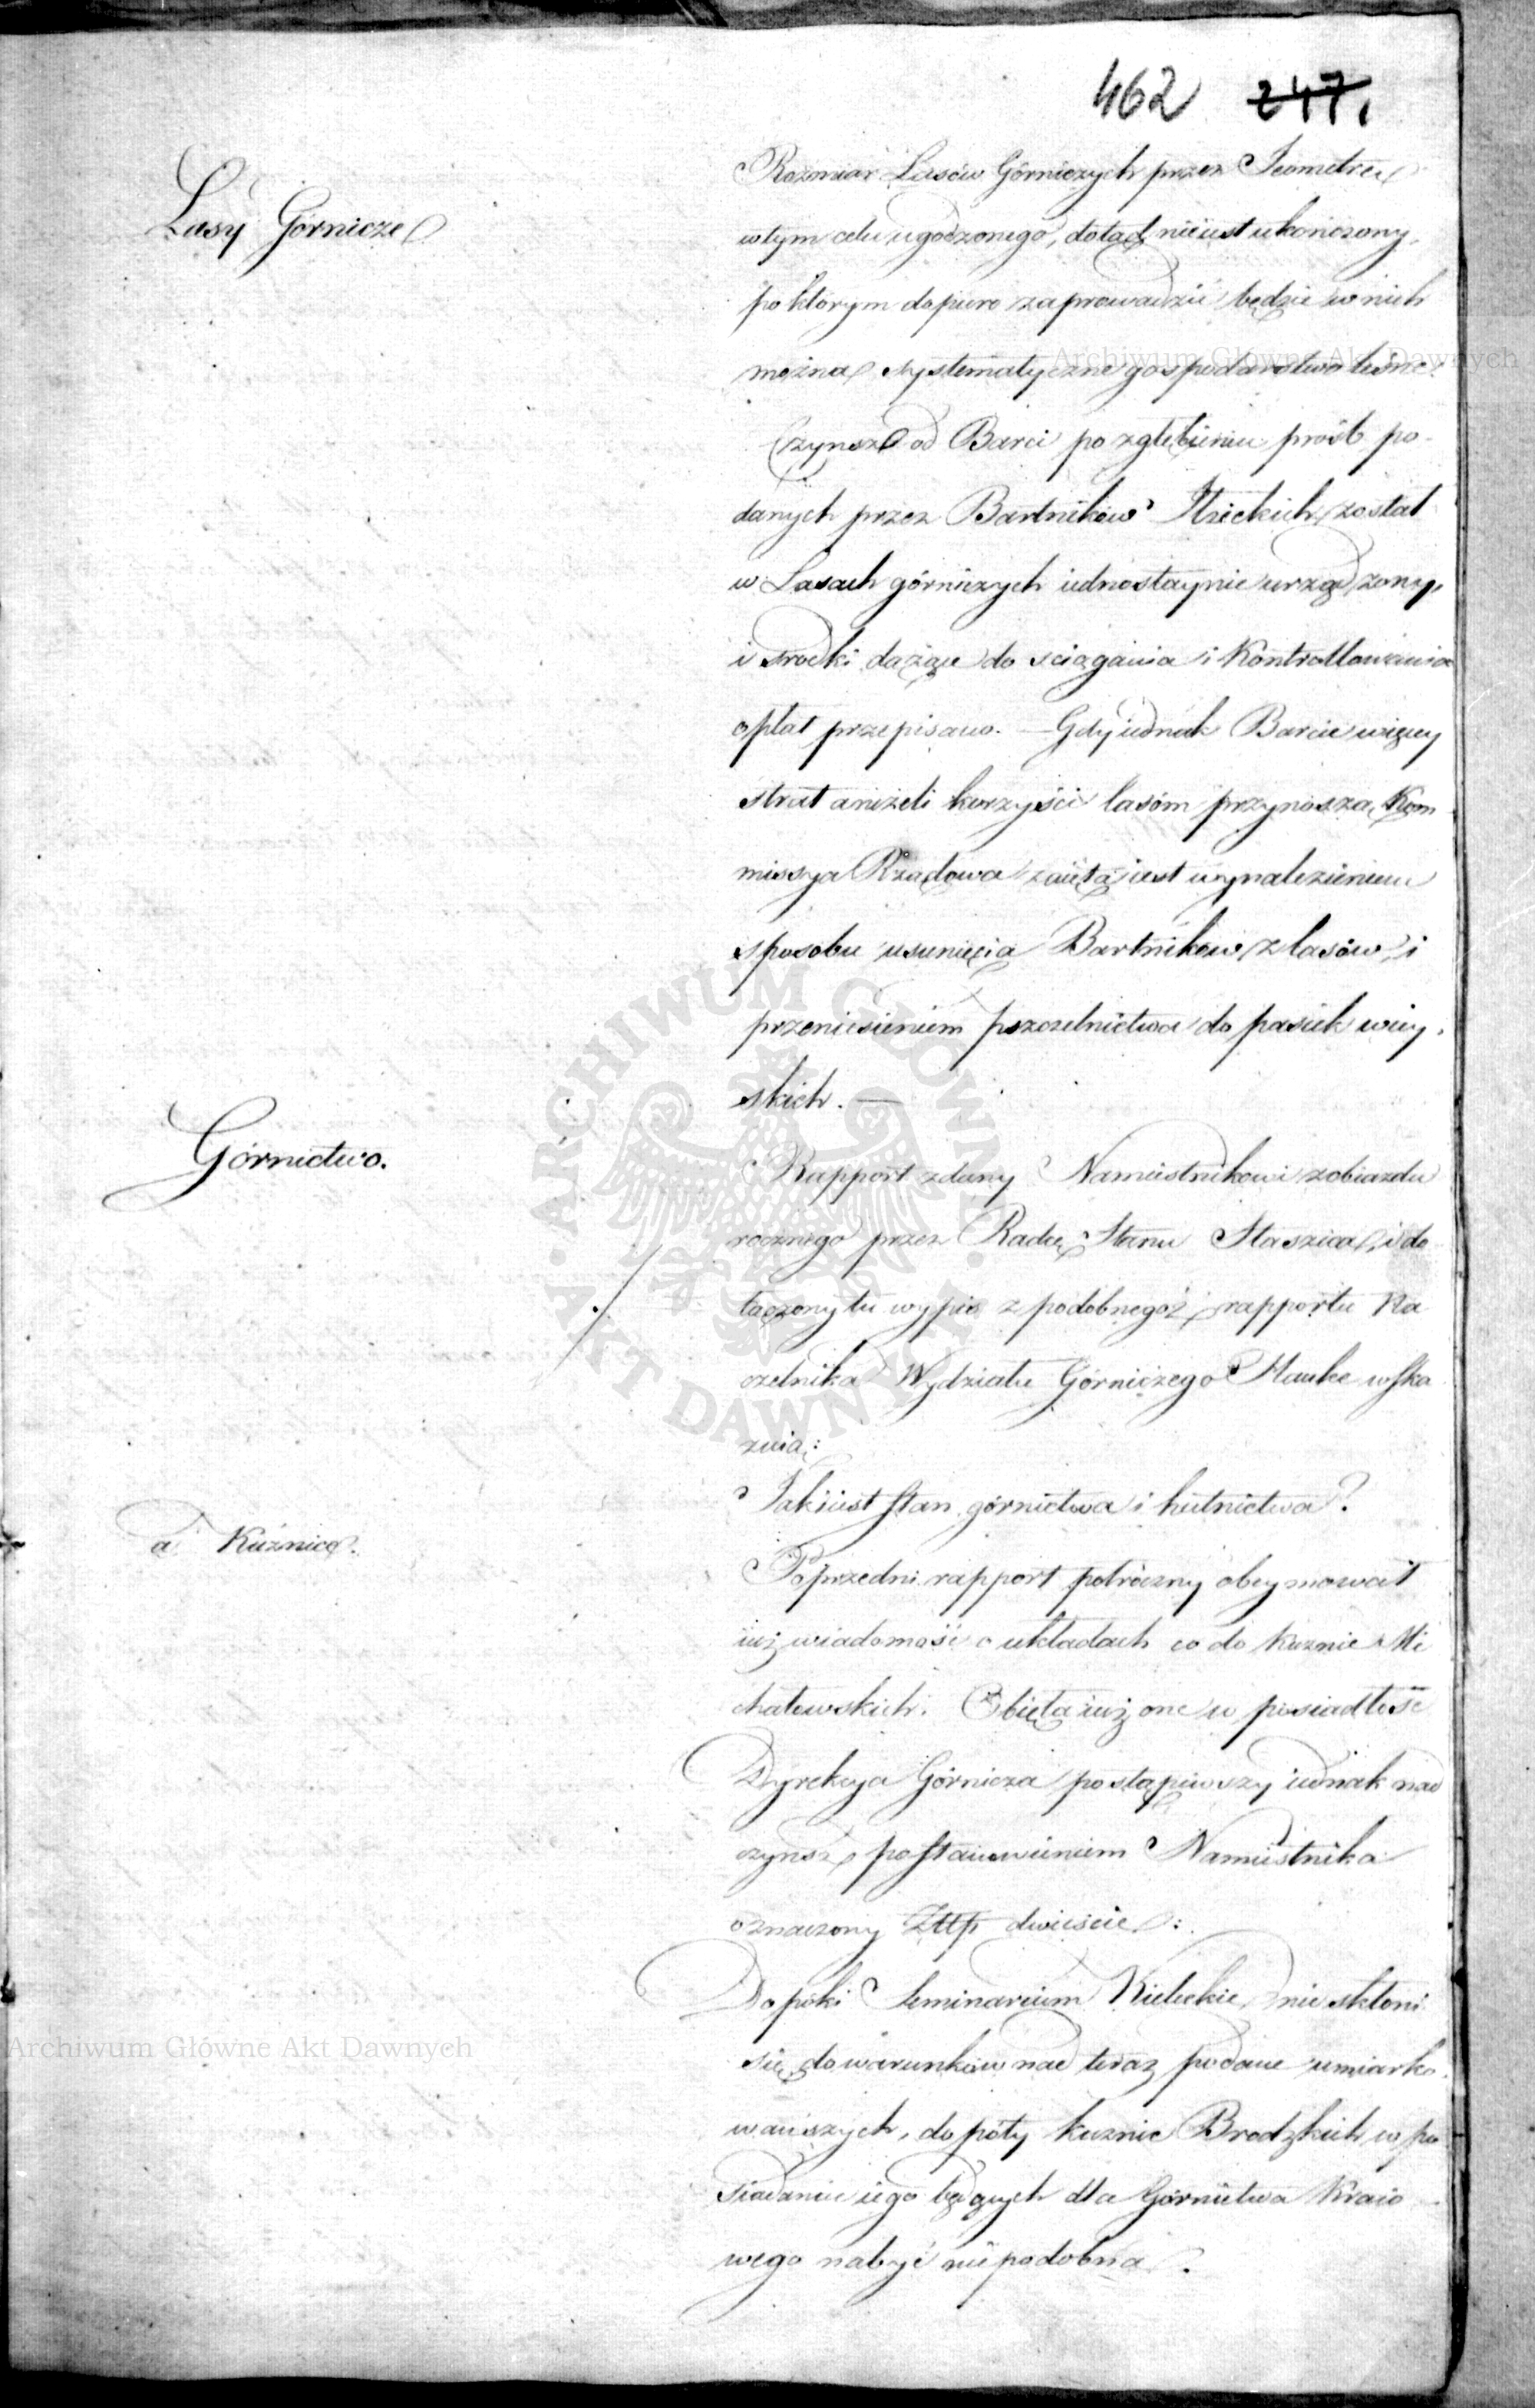 462 247.
Lasy Górnicze
Rozmiar Lasów Górniczych przez Jeometrę
w tym celu ugodzonego, dotąd nieiest ukończony,
po którym dopiero zaprowadzić będzie w nich
można systematyczne gospodarstwo leśne.
Czynsz od Barci po zgłębieniu prośb po-
danych przez Bartników Iłżeckich został
w Lasach górniczych iednostaynie urządzony,
i srodki dążące do sciągania i Kontrollowania
opłat przepisano. — Gdy iednak Barcie więcey
strat aniżeli korzyści lasóm przynoszą, Kom
missya Rządowa zaięta iest wynalezieniem
sposobu usunięcia Bartnikow z lasów, i
przeniesieniem pszczelnictwa do pasiek wiey-
skich. —
Górnictwo.
Rapport zdany Namiestnikowi z obiazdu
rocznego przez Radcę Stanu Staszica, i do
łączony tu wypis z podobnegoż rapportu Na
czelnika Wydziału Górniczego Hauke wska
zuią:
Jaki iest stan górnictwa i hutnictwa?
a Kuźnice.
Poprzedni rapport półroczny obeymował
iuż wiadomość o układach co do kuznic Mi
chałowskich. Obięła iuż one w posiadłość
Dyrekcya Górnicza postąpiwszy iednak nad
czynsz postanowieniem Namiestnika
oznaczony Złłp dwieście:
Dopóki Seminarium Kieleckie nie skłoni
się do warunków nad teraz podane umiarko-
wańszych, dopóty kuznic Brodzkich w po
siadaniu iego będących dla Górnictwa Kraio
wego nabyć niepodobna.
Archiwum Główne Akt Dawnych
Archiwum Główne Akt Dawnych
ARCHIWUM GŁÓWNE AKT DAWNYCH